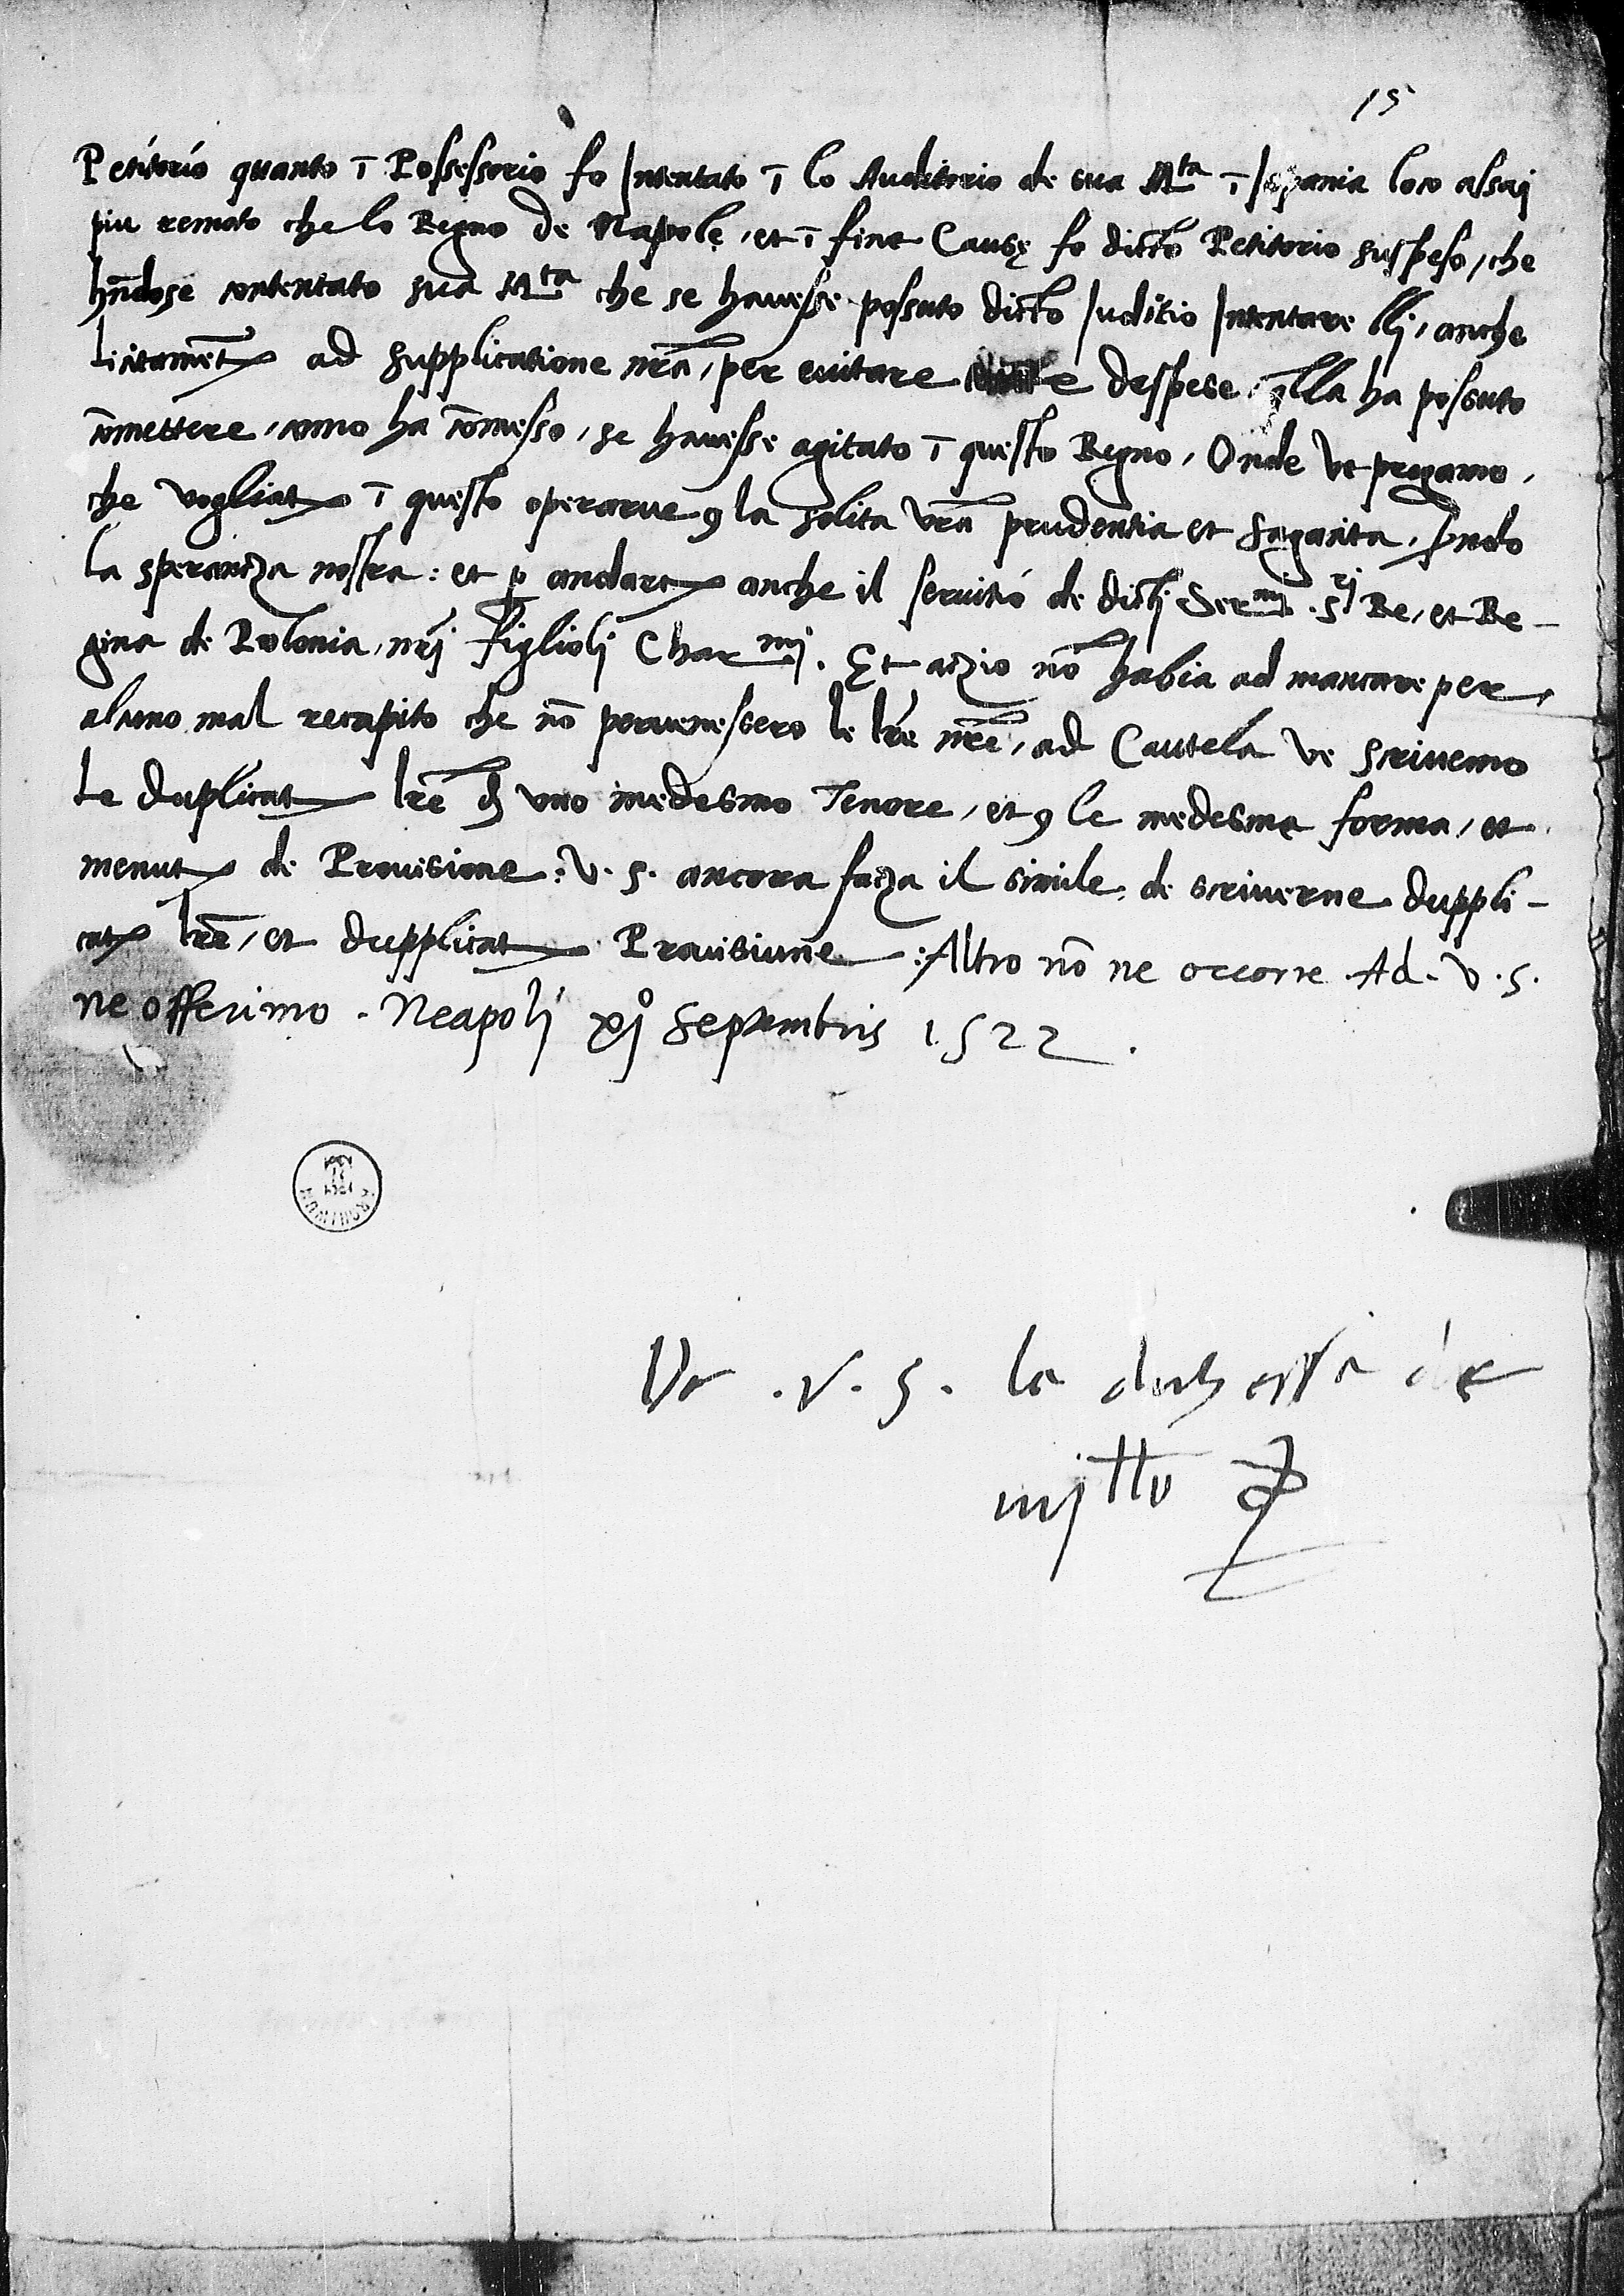 15
Petitorio quanto ī Possessorio fo Intentato ī lo Auditorio de sua M.ta ī Ispania loco assaj
piu remoto che lo Regno de Napole, et ī fine Causę fo dicto Petitorio suspeso, che
hñdose contentato sua M.ta che se havesse possuto dicto Iuditio Intentare llj, anche
licitamēte ad supplicatione nr̃a, per evitare le despese, q̃lla ha possuto
cōmettere, como ha cōmesso, se havesse agitato ī questo Regno, Onde ve pregamo,
che vogliate ī questo operarve ꝯ la solita vr̃a prudentia et sagacita,
la speranza nostra: et ꝑ andare anche il servitio de dictj Ser.mi S.rj Re, et Re-
gina de Polonia, nr̃j figliolj Char.mj. Et aczio nō habia ad mancare per
alcuno mal recapito che nō pervenessero le lr̃e nr̃e, ad Cautela ve scrivemo
le duplicate lr̃e de uno medesmo Tenore, et ꝯ le medesma forma, et
menute de Provisione: V. S. ancora facza il simile de scriverne duppli-
cate lr̃e, et dupplicate Provisiune: Altro nō ne occorre Ad. V. S.
ne offerimo. Neapolj xj° septembris 1522.
De .V.S. la duchessa de